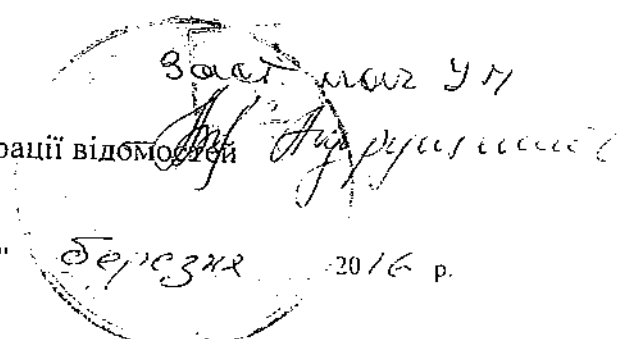 Заст. нач УМ
рації відомостей
" березня 2016 р.